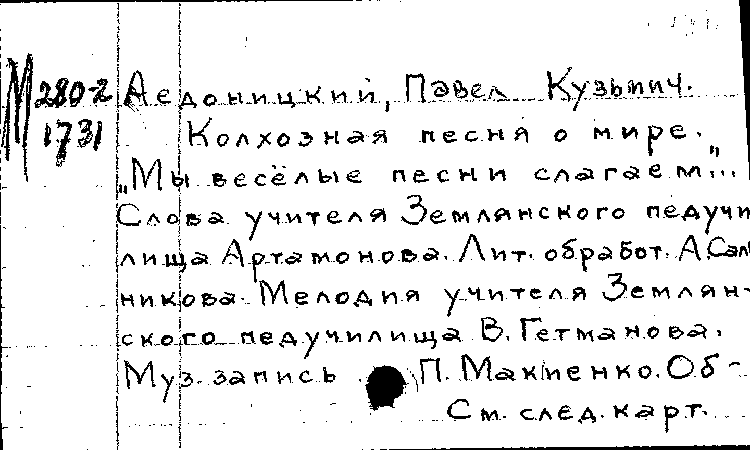 М 280-2 Аедоницкий, Павел Кузьмич.
1731 Колхозная песня о мире.
„Мы весёлые песни слагаем"...
Слова учителя Землянского педучи
лища Артамонова. Лит. обработ. А. Саль
никова. Мелодия учителя Землян-
ского педучилища В. Гетманова.
Муз. запись П. Макиенко. Об-
См. след. карт.